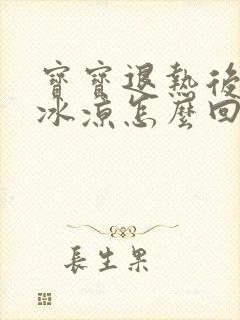 寶寶退熱後
冰涼怎麼回
長生果